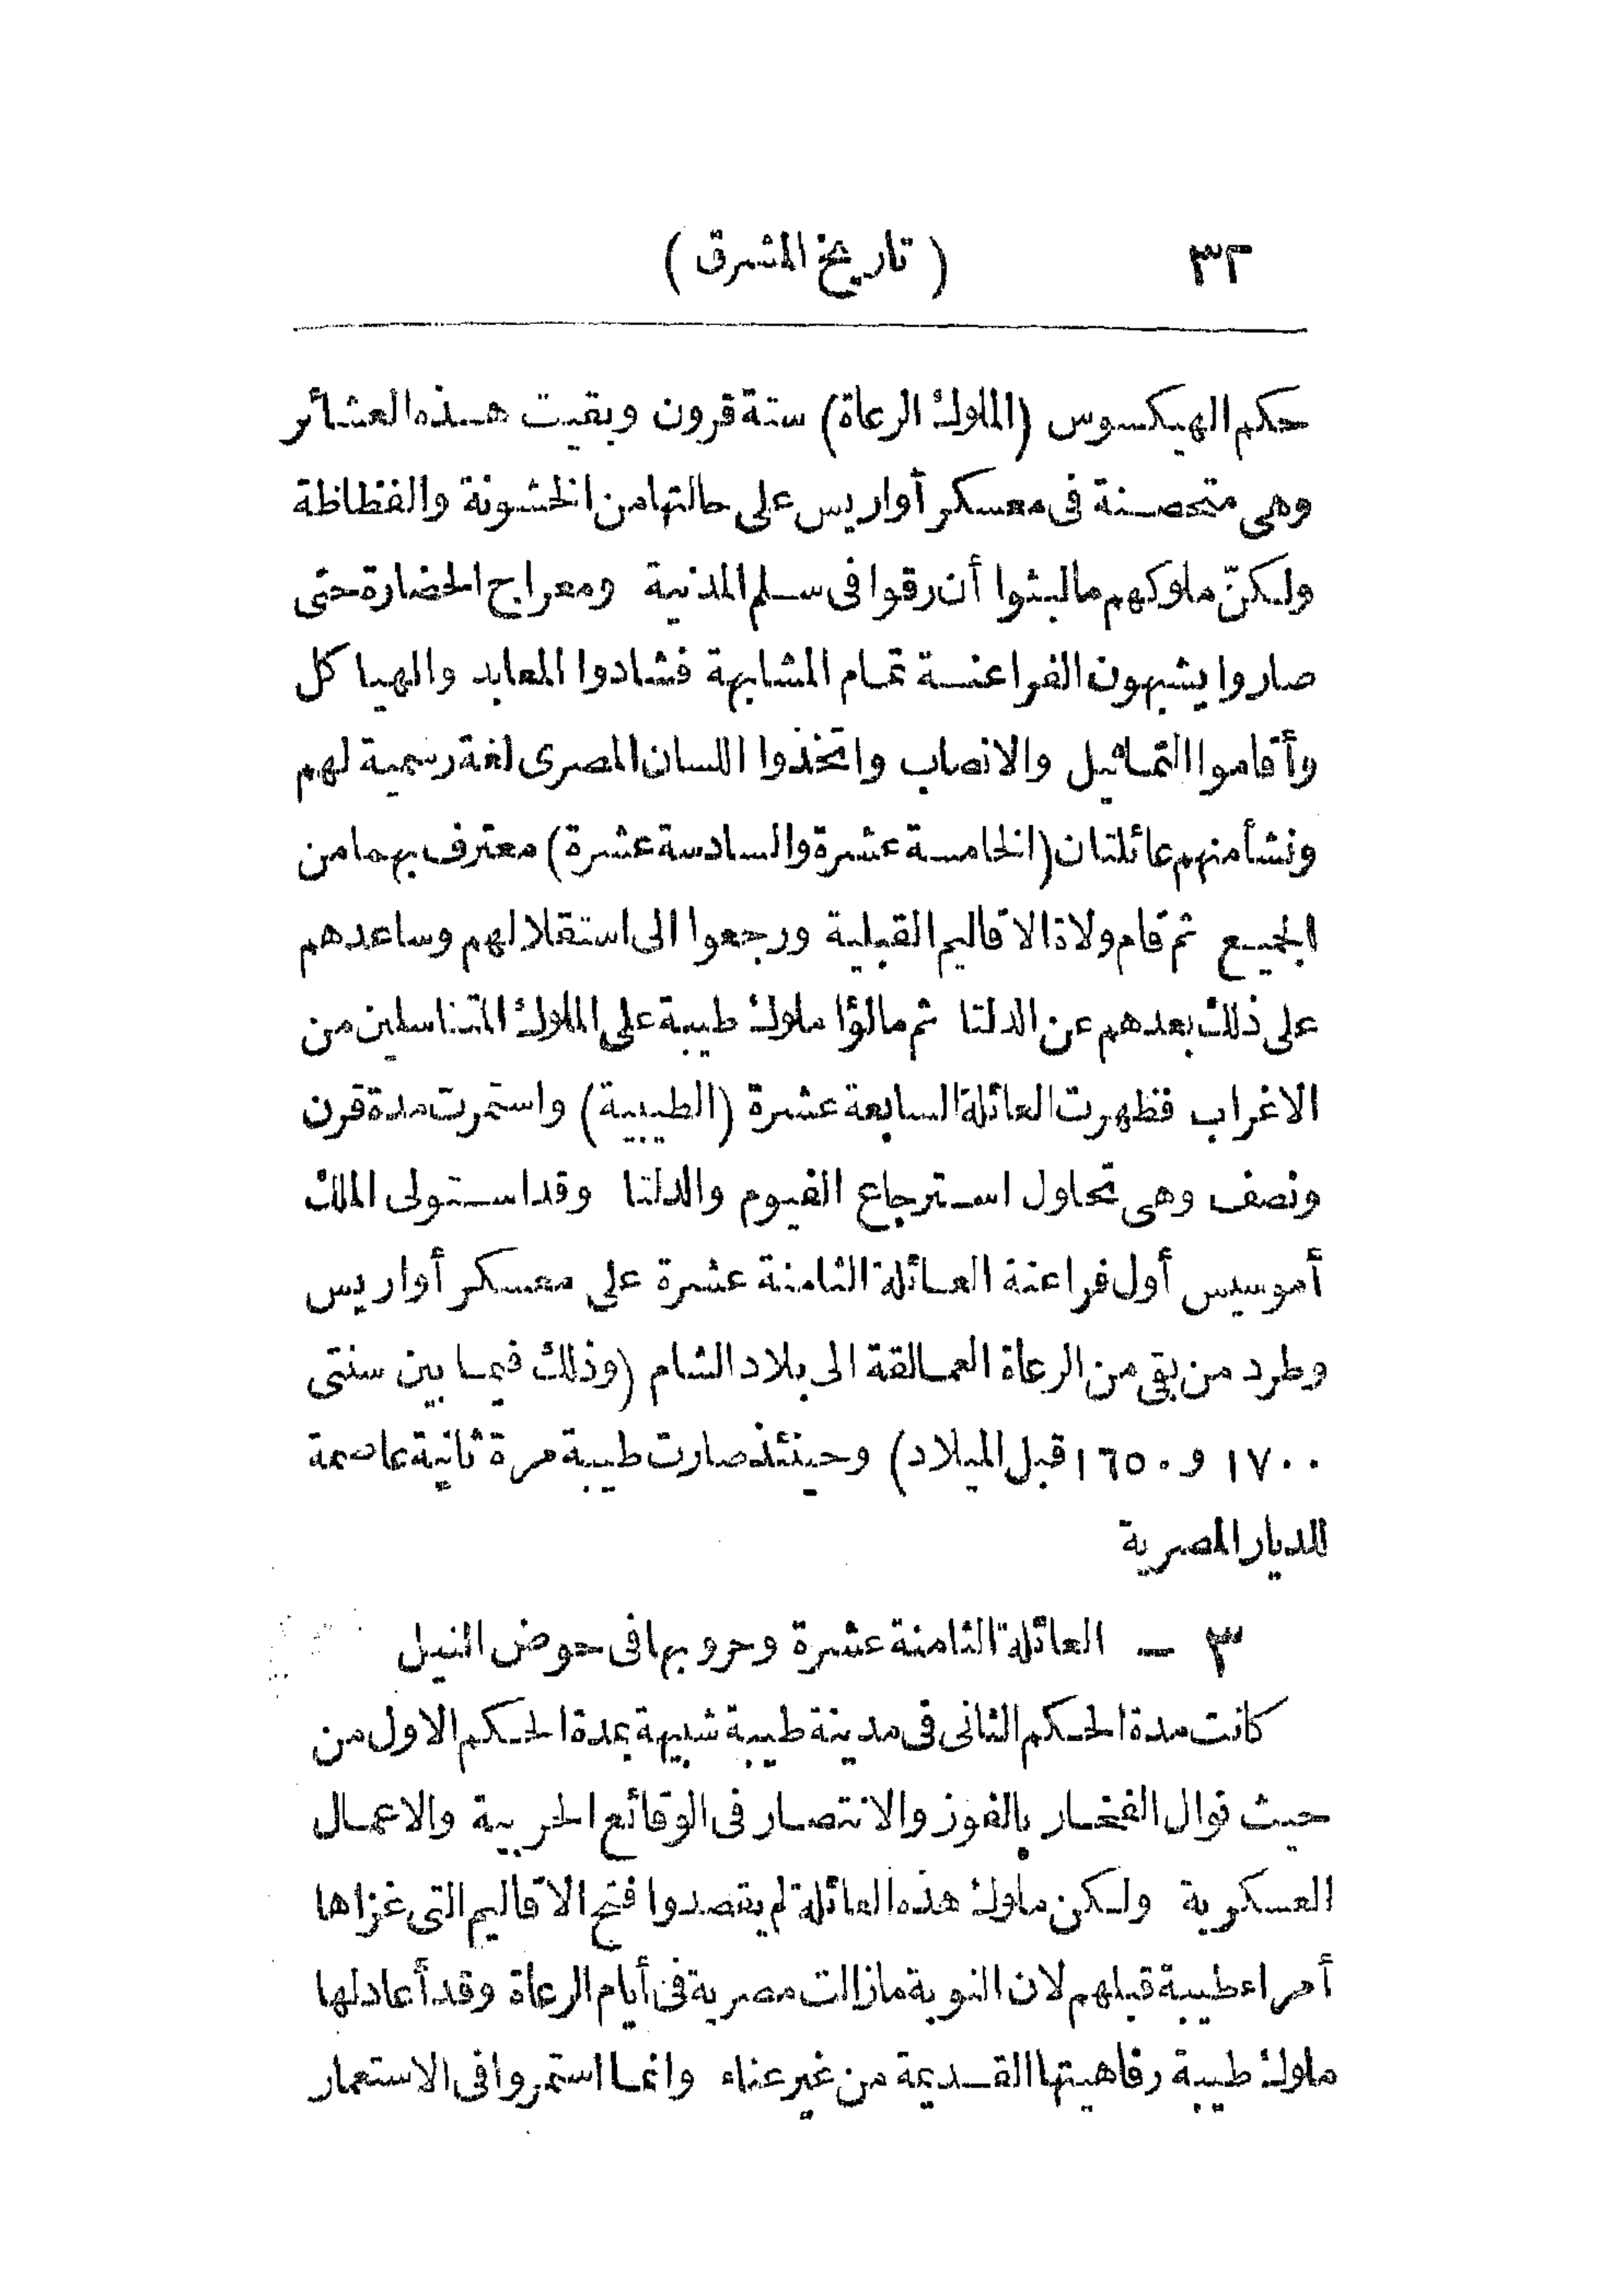 ٣٢ ( تاريخ المشرق )
حكم الهيكسوس (الملوك الرعاة) ستة قرون وبقيت هذه العشائر
وهى متحصنة فى معسكر أواريس على حالتها من الخشونة والفظاظة
ولكنّ ملوكهم مالبثوا أن رقوا فى سلم المدنية ومعراج الحضارة حتى
صاروا يشبهون الفراعنة تمام المشابهة فشادوا المعابد والهياكل
وأقاموا التماثيل والانصاب واتخذوا اللسان المصرى لغة رسمية لهم
ونشأ منهم عائلتان (الخامسة عشرة والسادسة عشرة) معترف بهما من
الجميع ثم قام ولاة الاقاليم القبلية ورجعوا الى استقلالهم وساعدهم
على ذلك بعدهم عن الدلتا ثم مالؤا ملوك طيبة على الملوك المتناسلين من
الاغراب فظهرت العائلة السابعة عشرة (الطيبية) واستمرت مدة قرن
ونصف وهى تحاول استرجاع الفيوم والدلتا وقد استولى الملك
أموسيس أول فراعنة العائلة الثامنة عشرة على معسكر أواريس
وطرد من بقى من الرعاة العمالقة الى بلاد الشام (وذلك فيما بين سنتى
١٧٠٠ و ١٦٥٠ قبل الميلاد) وحينئذ صارت طيبة مرة ثانية عاصمة
للديار المصرية
٣ - العائلة الثامنة عشرة وحروبها فى حوض النيل
كانت مدة الحكم الثانى فى مدينة طيبة شبيهة بمدة الحكم الاول من
حيث نوال الفخار بالفوز والانتصار فى الوقائع الحربية والاعمال
العسكرية ولكن ملوك هذه العائلة لم يقصدوا فتح الاقاليم التى غزاها
أمراء طيبة قبلهم لان النوبة مازالت مصرية فى أيام الرعاة وقد أعاد لها
ملوك طيبة رفاهيتها القديمة من غير عناء وانما استمروا فى الاستعمار